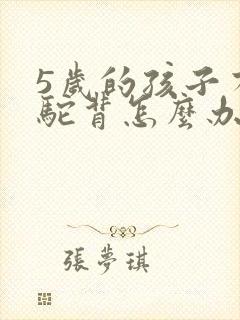 5歲的孩子有
駝背怎麼办
張夢琪